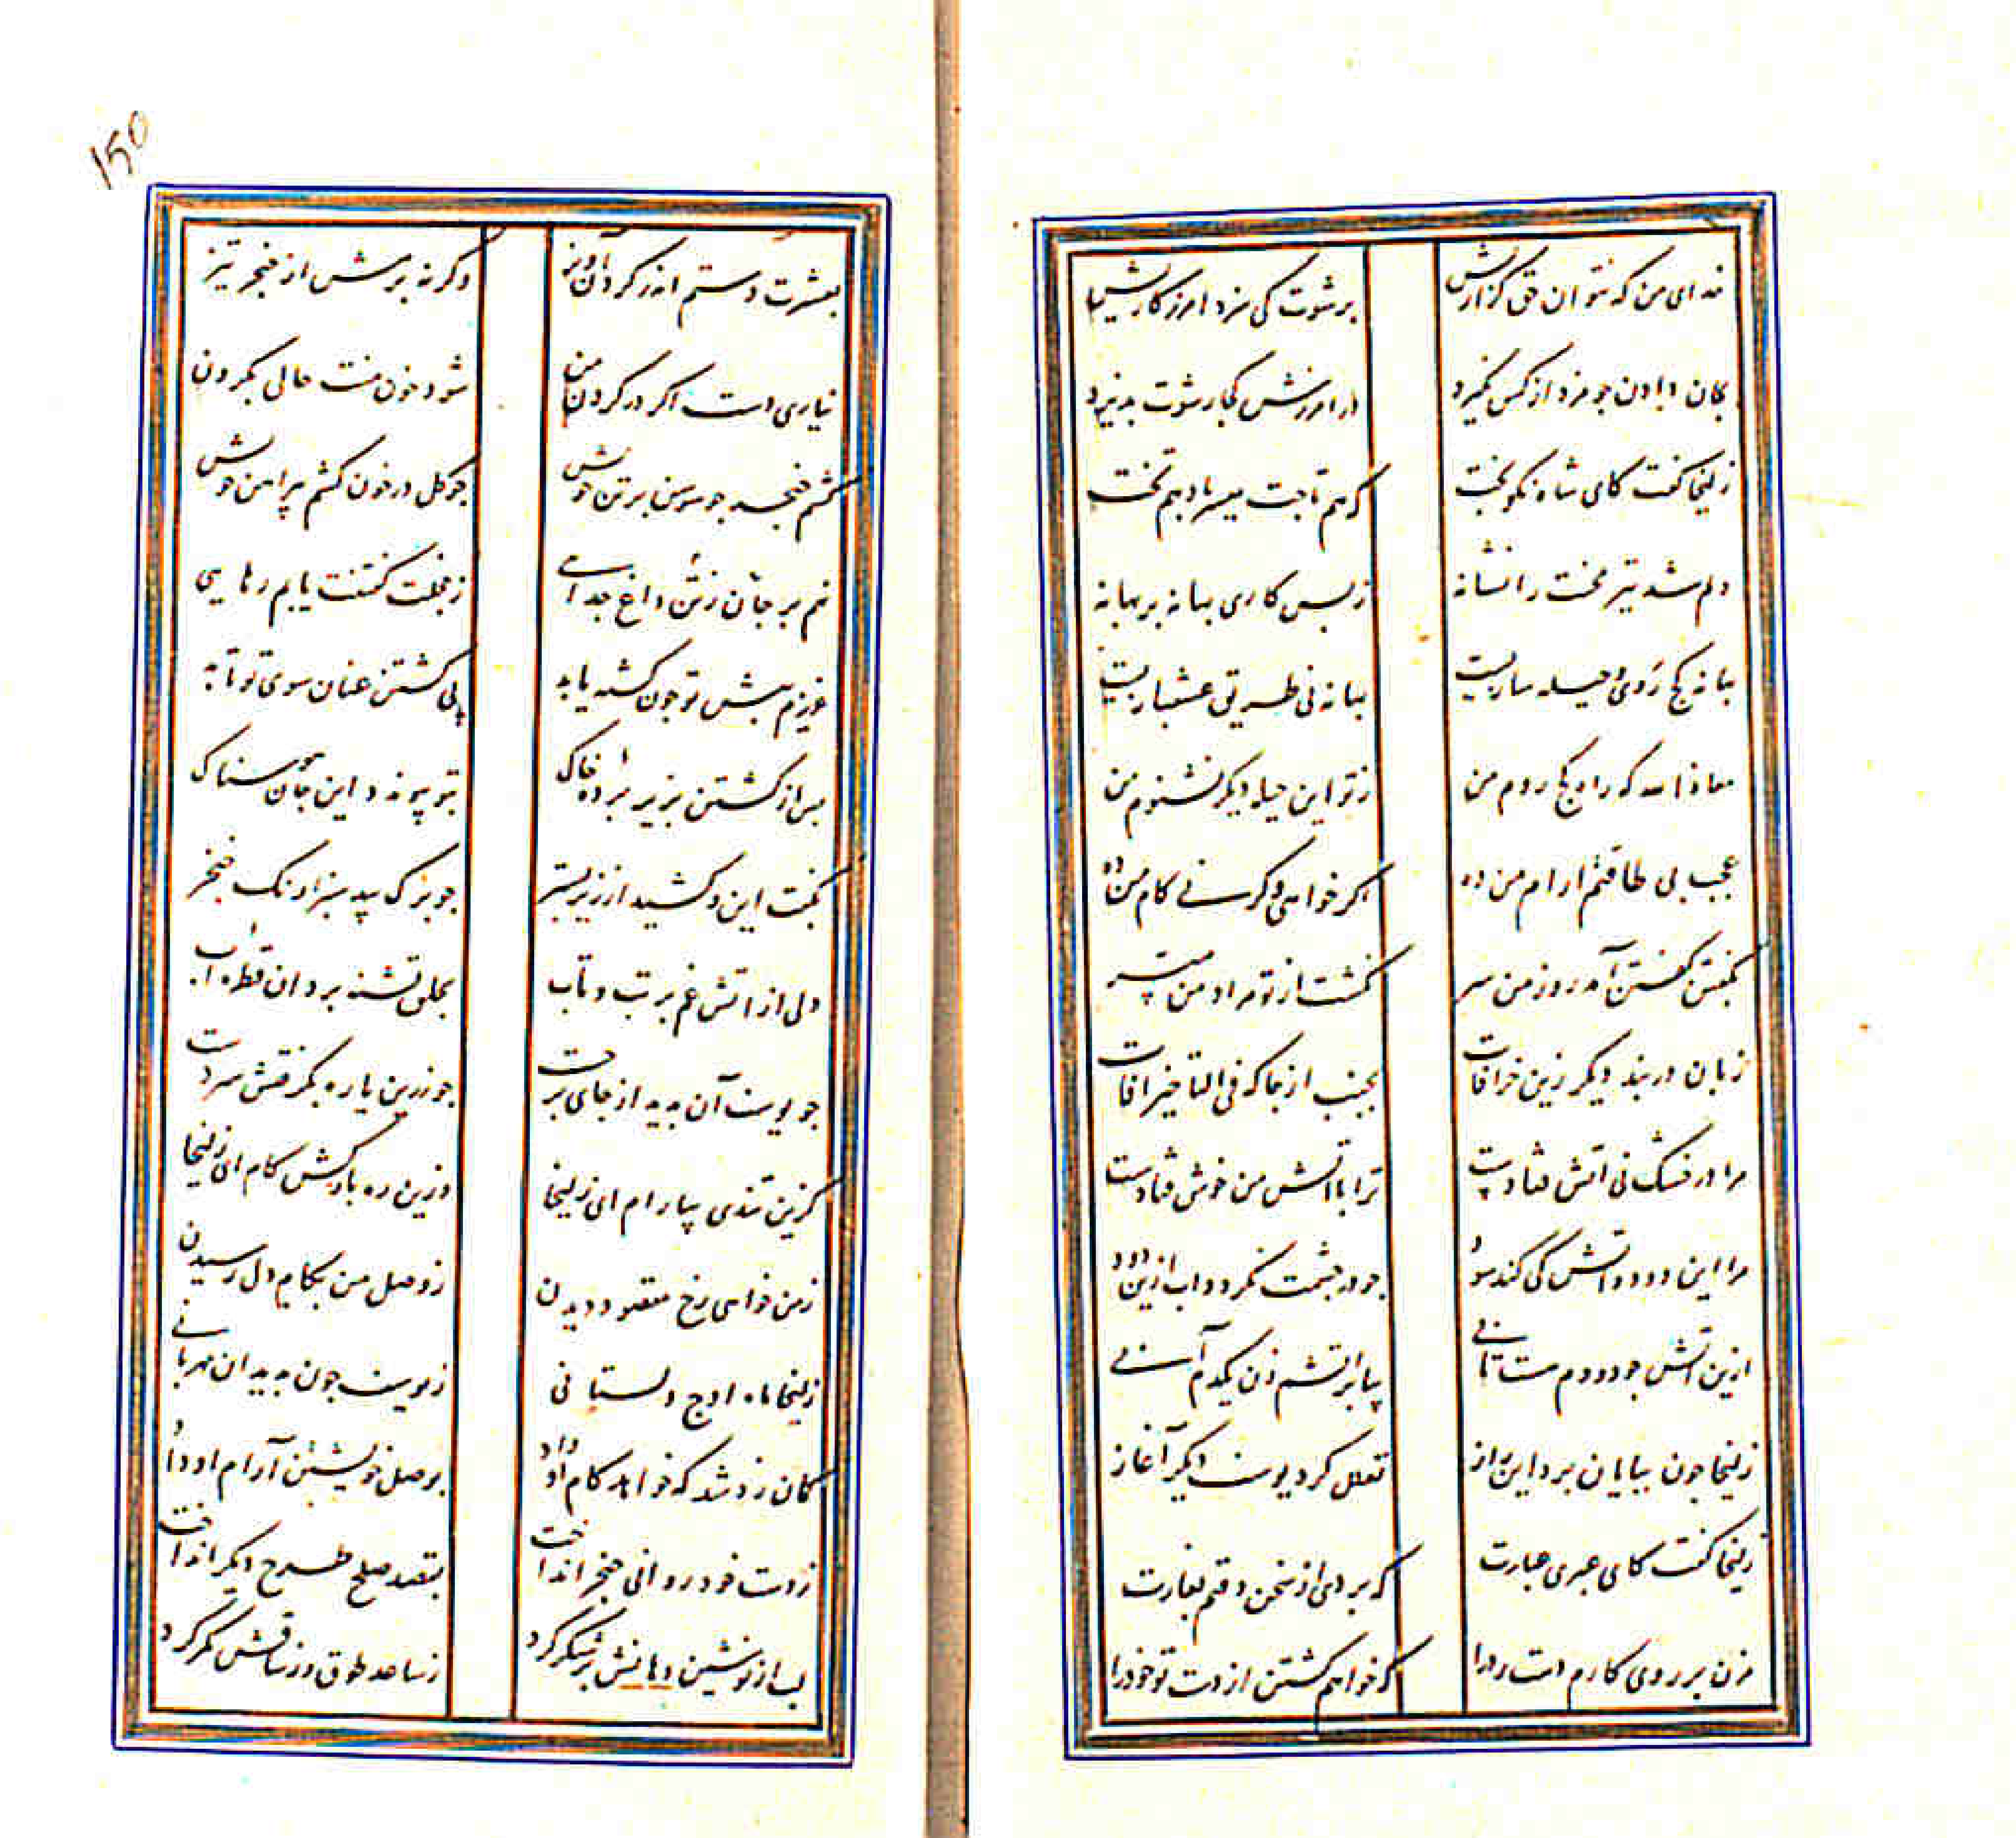 خدای من که نتوان حق گزاریش برشوت کی سزد امرزگاریش
بجان دادن جو مزد از کس نگیرد در امرزش کجا رشوت پذیرد
زلیخا گفت کای شاه نکو بخت که هم تاجت میسر باد هم تخت
دلم شد تیر محنت را نشانه ز بس کاری بهانه بر بهانه
بهانه کج روی و حیله سازیست بهانه نی طریق عشقبازیست
معاذ الله که راه کج روم من ز تو این حیله دیگر نشنوم من
عجب بی طاقتم ارام من ده اگر خواهی وگر نی کام من ده
بگفتن گفتن آمد روز من سر نگشت از تو مراد من میسر
زبان دربند دیگر زین خرافات بجنب از جا که فی التاخیر افات
مرا در خشک نی اتش فتادست ترا با اتش من خوش فتادست
مرا این دود و اتش کی کند سود جو در چشمت نگردد اب ازین دود
ازین اتش جو دودم هست تابی بیا بر اتشم زن یکدم آبی
زلیخا جون بپایان برد این راز تعلل کرد یوسف دیگر آغاز
زلیخا گفت کای عبری عبارت که بردی از سخن وقتم بغارت
مزن بر روی کارم دست رد را که خواهم کشتن از دست تو خود را
بعشرت دستم اندر گردن آویز وگرنه برمش از خنجر تیز
نیاری دست اگر در گردن من شود خون منت حالی بگردن
کشم خنجر جو سوسن بر تن خویش جو گل در خون کشم پیراهن خویش
نهم بر جان ز تن داغ جدایی ز خجلت گفتنت یابم رهایی
عزیزم پیش تو جون کشته یابد پی کشتن عنان سوی تو تابد
پس از کشتن بزیر پرده خاک بتو پیوندد این جان هوسناک
بگفت این و کشید از زیر بستر جو برگ بید سبزارنگ خنجر
دلی از اتش غم پر تب و تاب بحلق تشنه برد ان قطره آب
جو یوسف آن بدید از جای برجست جو زرین یاره بگرفتش سر دست
کزین تندی بیارام ای زلیخا وزین ره باز کش کام ای زلیخا
ز من خواهی رخ مقصود دیدن ز وصل من بکام دل رسیدن
زلیخا ماه اوج دلستانی ز یوسف جون بدید ان مهربانی
گمان زد شد که خواهد کام او داد بوصل خویشتن آرام او داد
ز دست خود روانی خنجر انداخت بقصد صلح طرح دیگر انداخت
لب از نوشین دهانش پر شکر کرد ز ساعد طوق وز ساقش کمر کرد